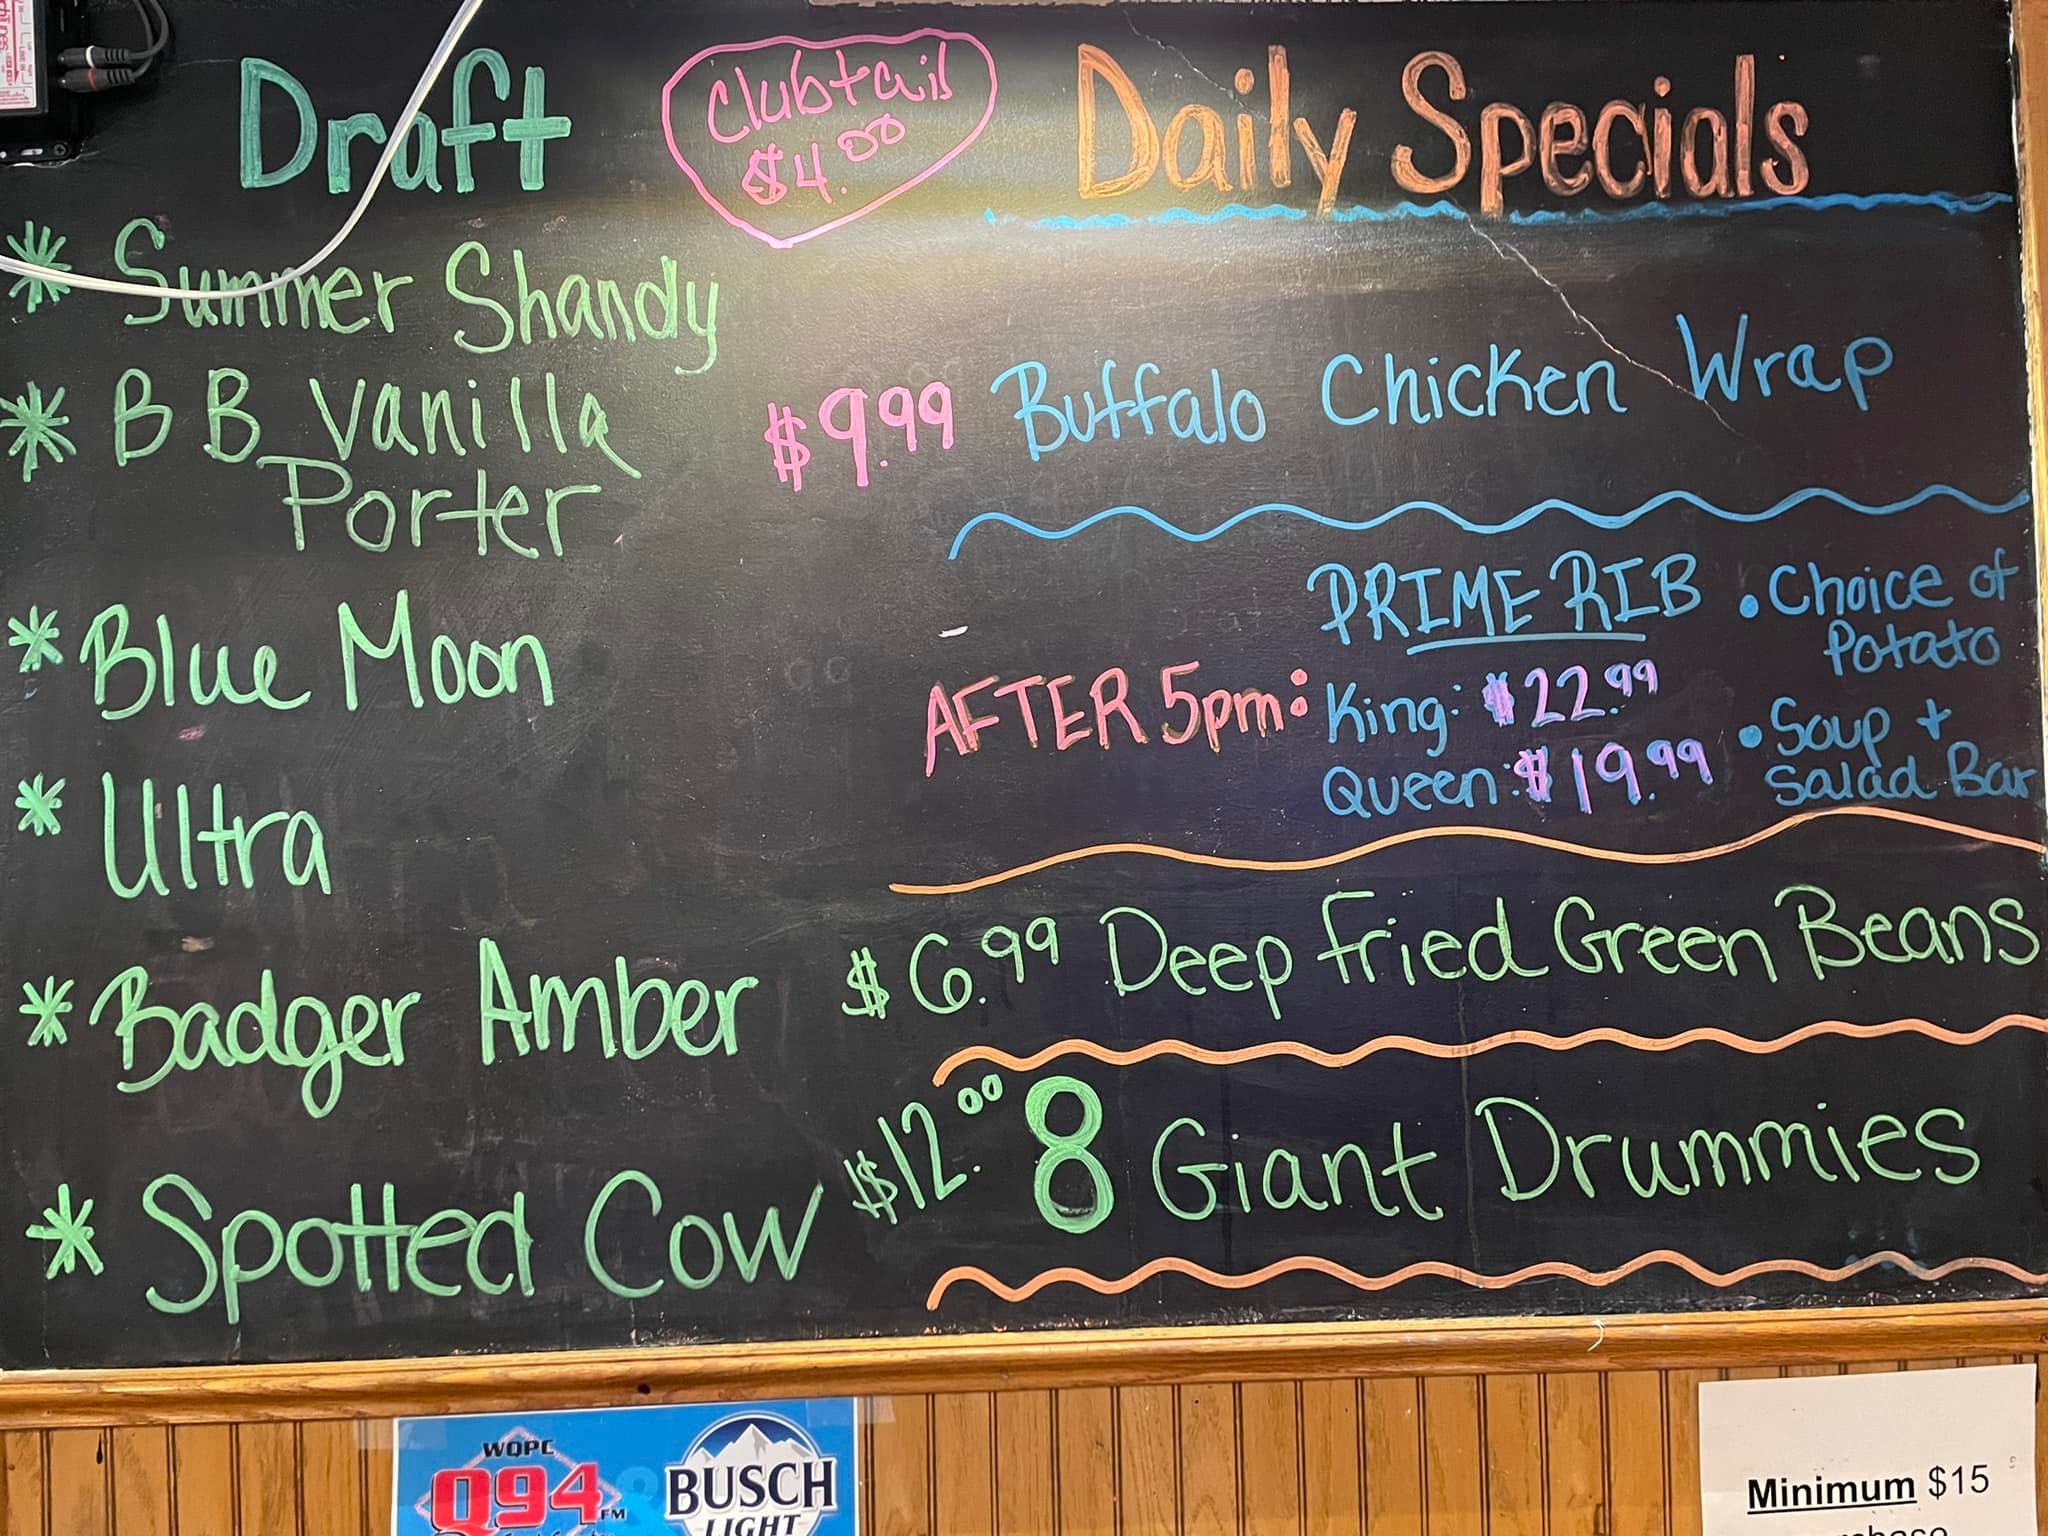 Draft
Clubtail
$4.00
* Summer Shandy
* BB Vanilla
Porter
* Blue Moon
* Ultra
* Badger Amber
* Spotted Cow
Daily Specials
$9.99 Buffalo Chicken Wrap
AFTER 5pm:
PRIME RIB
King: $22.99
Queen: $19.99
• Choice of
Potato
• Soup +
Salad Bar
$6.99 Deep Fried Green Beans
$12.00 8 Giant Drummies
WQPC
Q94
FM
BUSCH
LIGHT
Minimum $15